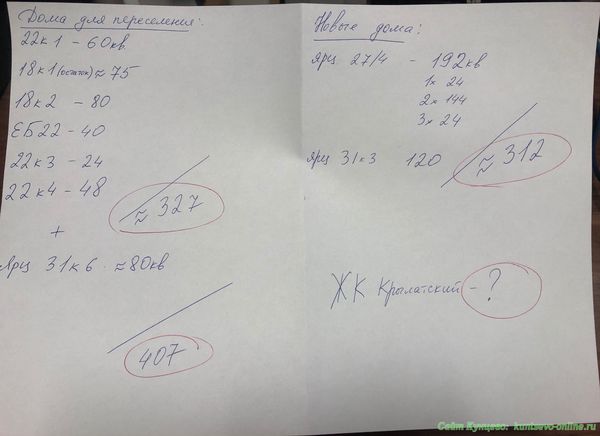 Дома для переселения:
22к1 - 60кв.
18к1 (остаток) ≈ 75
18к2 - 80
ЕБ22 - 40
22к3 - 24
22к4 - 48
≈ 327
+
Ярц 31к6 - ≈80кв
407
Новые дома:
Ярц 27/4 - 192кв
1к 24
2к 144
3к 24
Ярц 31к3 120
≈ 312
ЖК Крылатский - ?
Сайт Кунцево: kuntsevo-online.ru